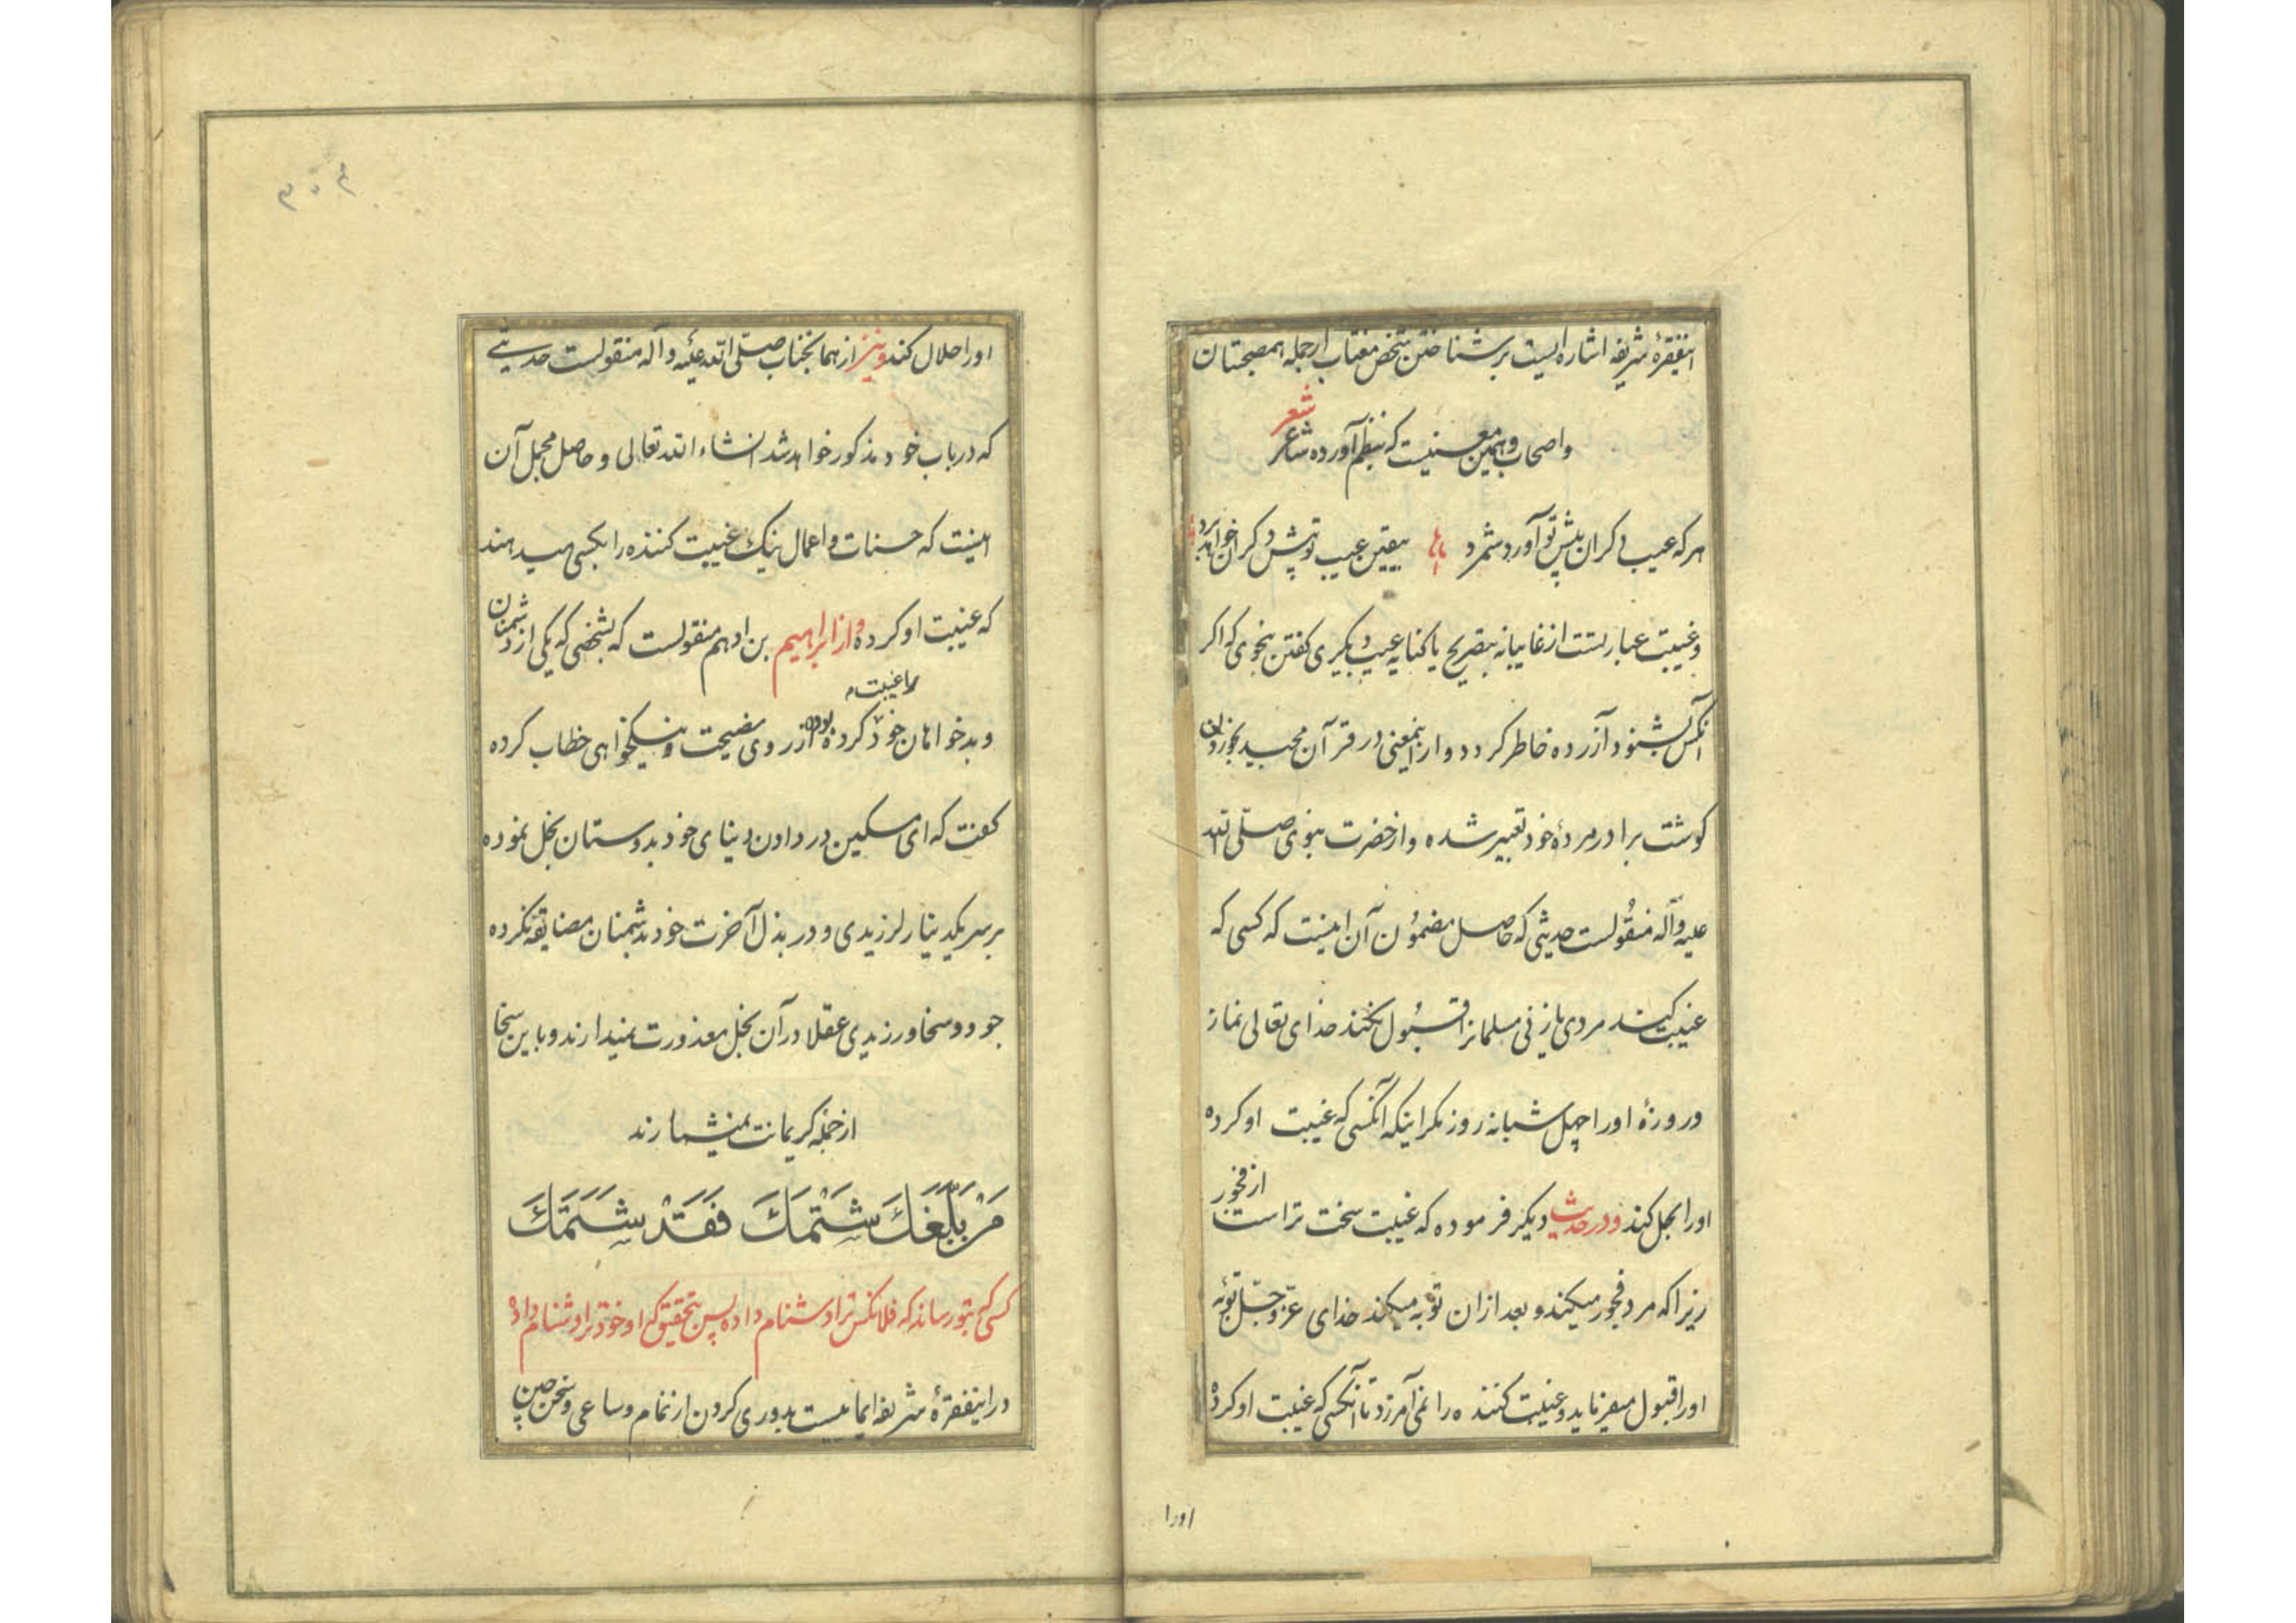 اینفقرهٔ شریفه اشاره ایست بر شناختن شخص مغتاب از جمله همصحبتان
شعر
واصحاب وهمین معنیست که بنظم آورده شاعر
هر که عیب دکران پیش تو آورد و شمرد بیقین عیب تو پیش دکران خواهد برد
وغیبت عبارتست از غایبانه بتصریح یا کنایه عیب دیکری کفتن بنحوی که اکر
آنکس بشنود آزرده خاطر کردد و از اینمعنی در قرآن مجید بخوردن
کوشت برادر مردهٔ خود تعبیر شده واز حضرت نبوی صلّی الله
علیه وآله منقولست حدیثی که حاصل مضمون آن اینست که کسی که
غیبت کند مردی یا زنی مسلمانرا قبول نکند خدای تعالی نماز
وروزهٔ اورا چهل شبانه روز مکر اینکه آنکسی که غیبت او کرده
اورا بحل کند ودر حدیث دیکر فرموده که غیبت سخت تر است از فجور
زیرا که مرد فجور میکند و بعد ازان توبه میکند خدای عزّ وجلّ توبه
اورا قبول میفرماید وغیبت کننده را نمی آمرزد تا آنکسی که غیبت او کرده
اورا
اورا حلال کند ونیز از همانجناب صلّی الله علیه وآله منقولست حدیثی
که در باب خود مذکور خواهد شد انشاء الله تعالی و حاصل مجمل آن
اینست که حسنات و اعمال نیک غیبت کننده را بکسی میدهند
که غیبت او کرده واز ابراهیم بن ادهم منقولست که بشخصی که یکی از دشمنان
وبدخواهان خود را غیبت کرده بوده از روی نصیحت و نیکخواهی خطاب کرده
کفت که ای مسکین در دادن دنیای خود بدوستان بخل نموده
بر سر یکدینار لرزیدی و در بذل آخرت خود بدشمنان مضایقه نکرده
جود و سخا ورزیدی عقلا در آن بخل معذورت نمیدارند و باین سخا
از جمله کریمانت نمیشمارند
مَنْ بَلَّغَكَ شَتْمَكَ فَقَدْ شَتَمَكَ
کسی که بتو رساند که فلانکس ترا دشنام داده پس بتحقیق که او خود ترا دشنام داده
در اینفقرهٔ شریفه ایماییست بدوری کردن از نمام وساعی وسخن چین